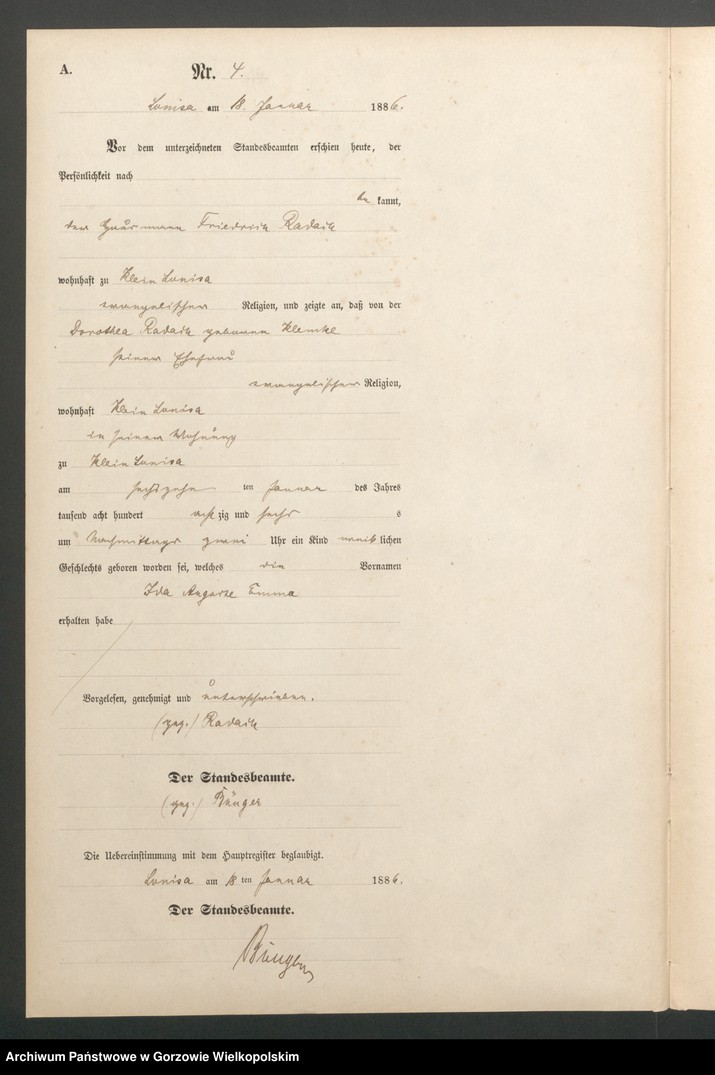 A.
Nr. 4.
Louisa am 18. Januar 1886.
Vor dem unterzeichneten Standesbeamten erschien heute, der
Persönlichkeit nach
be kannt,
der Friedrich Radaik
wohnhaft zu Klein Louisa
evangelischer Religion, und zeigte an, daß von der
Dorothea Radaik geborenen Klemke
seiner Ehefrau
evangelischer Religion,
wohnhaft Klein Louisa
in seiner Wohnung
zu Klein Louisa
am sechszehn ten Januar des Jahres
tausend acht hundert acht zig und sechs s
um Nachmittags zwei Uhr ein Kind weib lichen
Geschlechts geboren worden sei, welches die Vornamen
Ida Auguste Emma
erhalten habe
Vorgelesen, genehmigt und unterschrieben.
(gez.) Radaik
Der Standesbeamte.
(gez.) Bünger
Die Uebereinstimmung mit dem Hauptregister beglaubigt.
Louisa am 18 ten Januar 1886.
Der Standesbeamte.
Bünger
Archiwum Państwowe w Gorzowie Wielkopolskim